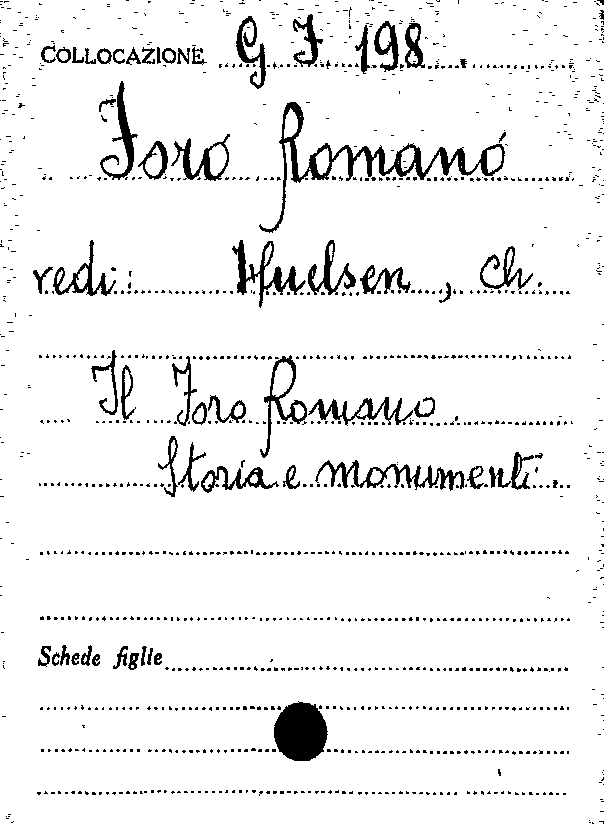 COLLOCAZIONE G I 198
Foro Romano
vedi: Huelsen, Ch.
Il Foro Romano.
Storia e monumenti.
Schede figlie